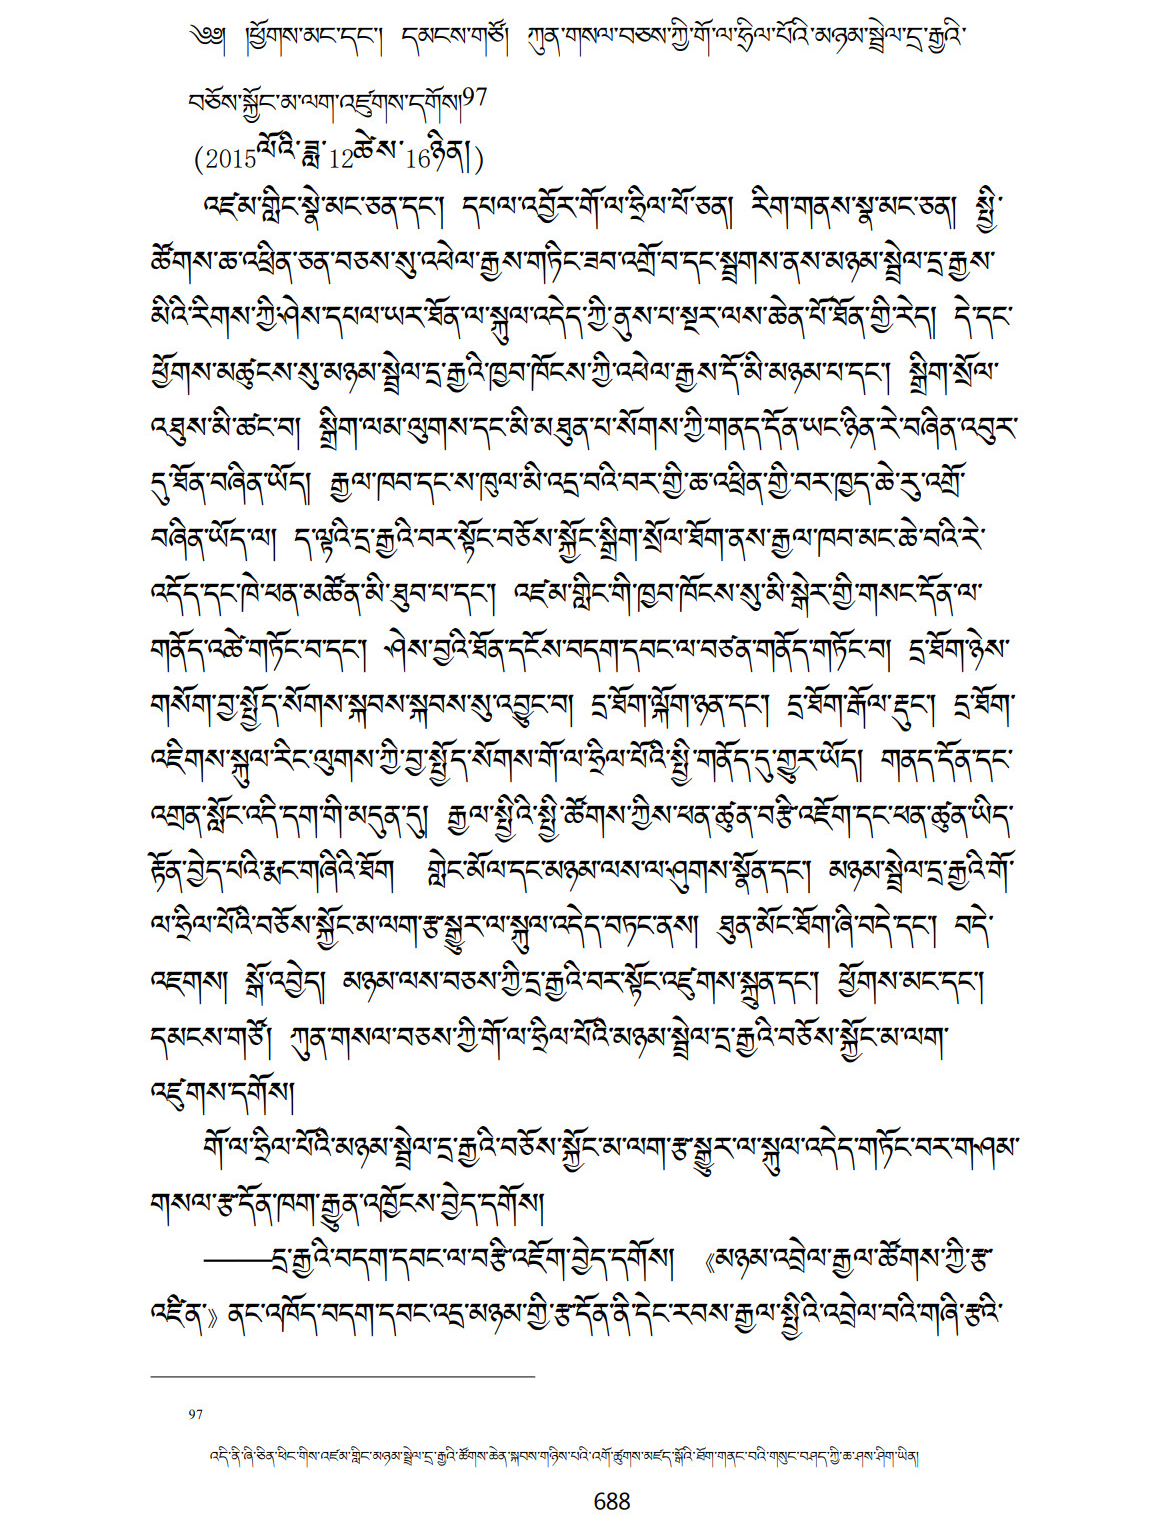 ༄༅། །ཕྱོགས་མང་དང་། དམངས་གཙོ། ཀུན་གསལ་བཅས་ཀྱི་གོ་ལ་ཧྲིལ་པོའི་མཉམ་སྦྲེལ་དྲ་རྒྱའི་
བཅོས་སྐྱོང་མ་ལག་འཛུགས་དགོས།97
(2015ལོའི་ཟླ་12ཚེས་16ཉིན།)
འཛམ་གླིང་སྣེ་མང་ཅན་དང་། དཔལ་འབྱོར་གོ་ལ་ཧྲིལ་པོ་ཅན། རིག་གནས་སྣ་མང་ཅན། སྤྱི་
ཚོགས་ཆ་འཕྲིན་ཅན་བཅས་སུ་འཕེལ་རྒྱས་གཏིང་ཟབ་འགྲོ་བ་དང་སྦྲགས་ནས་མཉམ་སྦྲེལ་དྲ་རྒྱས་
མིའི་རིགས་ཀྱི་ཤེས་དཔལ་ཡར་ཐོན་ལ་སྐུལ་འདེད་ཀྱི་ནུས་པ་སྔར་ལས་ཆེན་པོ་ཐོན་གྱི་རེད། དེ་དང་
ཕྱོགས་མཚུངས་སུ་མཉམ་སྦྲེལ་དྲ་རྒྱའི་ཁྱབ་ཁོངས་ཀྱི་འཕེལ་རྒྱས་དོ་མི་མཉམ་པ་དང་། སྒྲིག་སྲོལ་
འཐུས་མི་ཚང་བ། སྒྲིག་ལམ་ལུགས་དང་མི་མཐུན་པ་སོགས་ཀྱི་གནད་དོན་ཡང་ཉིན་རེ་བཞིན་འབུར་
དུ་ཐོན་བཞིན་ཡོད། རྒྱལ་ཁབ་དང་ས་ཁུལ་མི་འདྲ་བའི་བར་གྱི་ཆ་འཕྲིན་གྱི་བར་ཁྱད་ཆེ་རུ་འགྲོ་
བཞིན་ཡོད་ལ། ད་ལྟའི་དྲ་རྒྱའི་བར་སྟོང་བཅོས་སྐྱོང་སྒྲིག་སྲོལ་ཐོག་ནས་རྒྱལ་ཁབ་མང་ཆེ་བའི་རེ་
འདོད་དང་ཁེ་ཕན་མཚོན་མི་ཐུབ་པ་དང་། འཛམ་གླིང་གི་ཁྱབ་ཁོངས་སུ་མི་སྒེར་གྱི་གསང་དོན་ལ་
གནོད་འཚེ་གཏོང་བ་དང་། ཤེས་བྱའི་ཐོན་དངོས་བདག་དབང་ལ་བཙན་གནོད་གཏོང་བ། དྲ་ཐོག་ཉེས་
གསོག་བྱ་སྤྱོད་སོགས་སྐབས་སྐབས་སུ་འབྱུང་བ། དྲ་ཐོག་ལྐོག་ཉན་དང་། དྲ་ཐོག་རྒོལ་རྡུང་། དྲ་ཐོག་
འཇིགས་སྐུལ་རིང་ལུགས་ཀྱི་བྱ་སྤྱོད་སོགས་གོ་ལ་ཧྲིལ་པོའི་སྤྱི་གནོད་དུ་གྱུར་ཡོད། གནད་དོན་དང་
འགྲན་སློང་འདི་དག་གི་མདུན་དུ། རྒྱལ་སྤྱིའི་སྤྱི་ཚོགས་ཀྱིས་ཕན་ཚུན་བརྩི་འཇོག་དང་ཕན་ཚུན་ཡིད་
རྟོན་བྱེད་པའི་རྨང་གཞིའི་ཐོག གླེང་མོལ་དང་མཉམ་ལས་ལ་ཤུགས་སྣོན་དང་། མཉམ་སྦྲེལ་དྲ་རྒྱའི་གོ་
ལ་ཧྲིལ་པོའི་བཅོས་སྐྱོང་མ་ལག་རྩ་སྒྱུར་ལ་སྐུལ་འདེད་བཏང་ནས། ཐུན་མོང་ཐོག་ཞི་བདེ་དང་། བདེ་
འཇགས། སྒོ་འབྱེད། མཉམ་ལས་བཅས་ཀྱི་དྲ་རྒྱའི་བར་སྟོང་འཛུགས་སྐྲུན་དང་། ཕྱོགས་མང་དང་།
དམངས་གཙོ། ཀུན་གསལ་བཅས་ཀྱི་གོ་ལ་ཧྲིལ་པོའི་མཉམ་སྦྲེལ་དྲ་རྒྱའི་བཅོས་སྐྱོང་མ་ལག་
འཛུགས་དགོས།
གོ་ལ་ཧྲིལ་པོའི་མཉམ་སྦྲེལ་དྲ་རྒྱའི་བཅོས་སྐྱོང་མ་ལག་རྩ་སྒྱུར་ལ་སྐུལ་འདེད་གཏོང་བར་གཤམ་
གསལ་རྩ་དོན་ཁག་རྒྱུན་འཁྱོངས་བྱེད་དགོས།
———དྲ་རྒྱའི་བདག་དབང་ལ་བརྩི་འཇོག་བྱེད་དགོས། 《མཉམ་འབྲེལ་རྒྱལ་ཚོགས་ཀྱི་རྩ་
འཛིན་》ནང་འཁོད་བདག་དབང་འདྲ་མཉམ་གྱི་རྩ་དོན་ནི་དེང་རབས་རྒྱལ་སྤྱིའི་འབྲེལ་བའི་གཞི་རྩའི་
97
འདི་ནི་ཞི་ཅིན་ཕིང་གིས་འཛམ་གླིང་མཉམ་སྦྲེལ་དྲ་རྒྱའི་ཚོགས་ཆེན་སྐབས་གཉིས་པའི་འགོ་ཚུགས་མཛད་སྒོའི་ཐོག་གནང་བའི་གསུང་བཤད་ཀྱི་ཆ་ཤས་ཤིག་ཡིན།
688